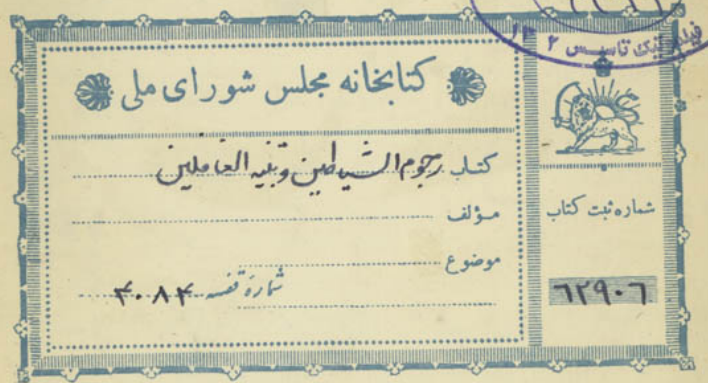 کتابخانه مجلس شورای ملی
کتاب رجوم الشیاطین و تنبیه الغافلین
مؤلف
موضوع
شمارهٔ قفسه ۴۰۸۴
شماره ثبت کتاب
٦٢٩٠٦
تاسیس